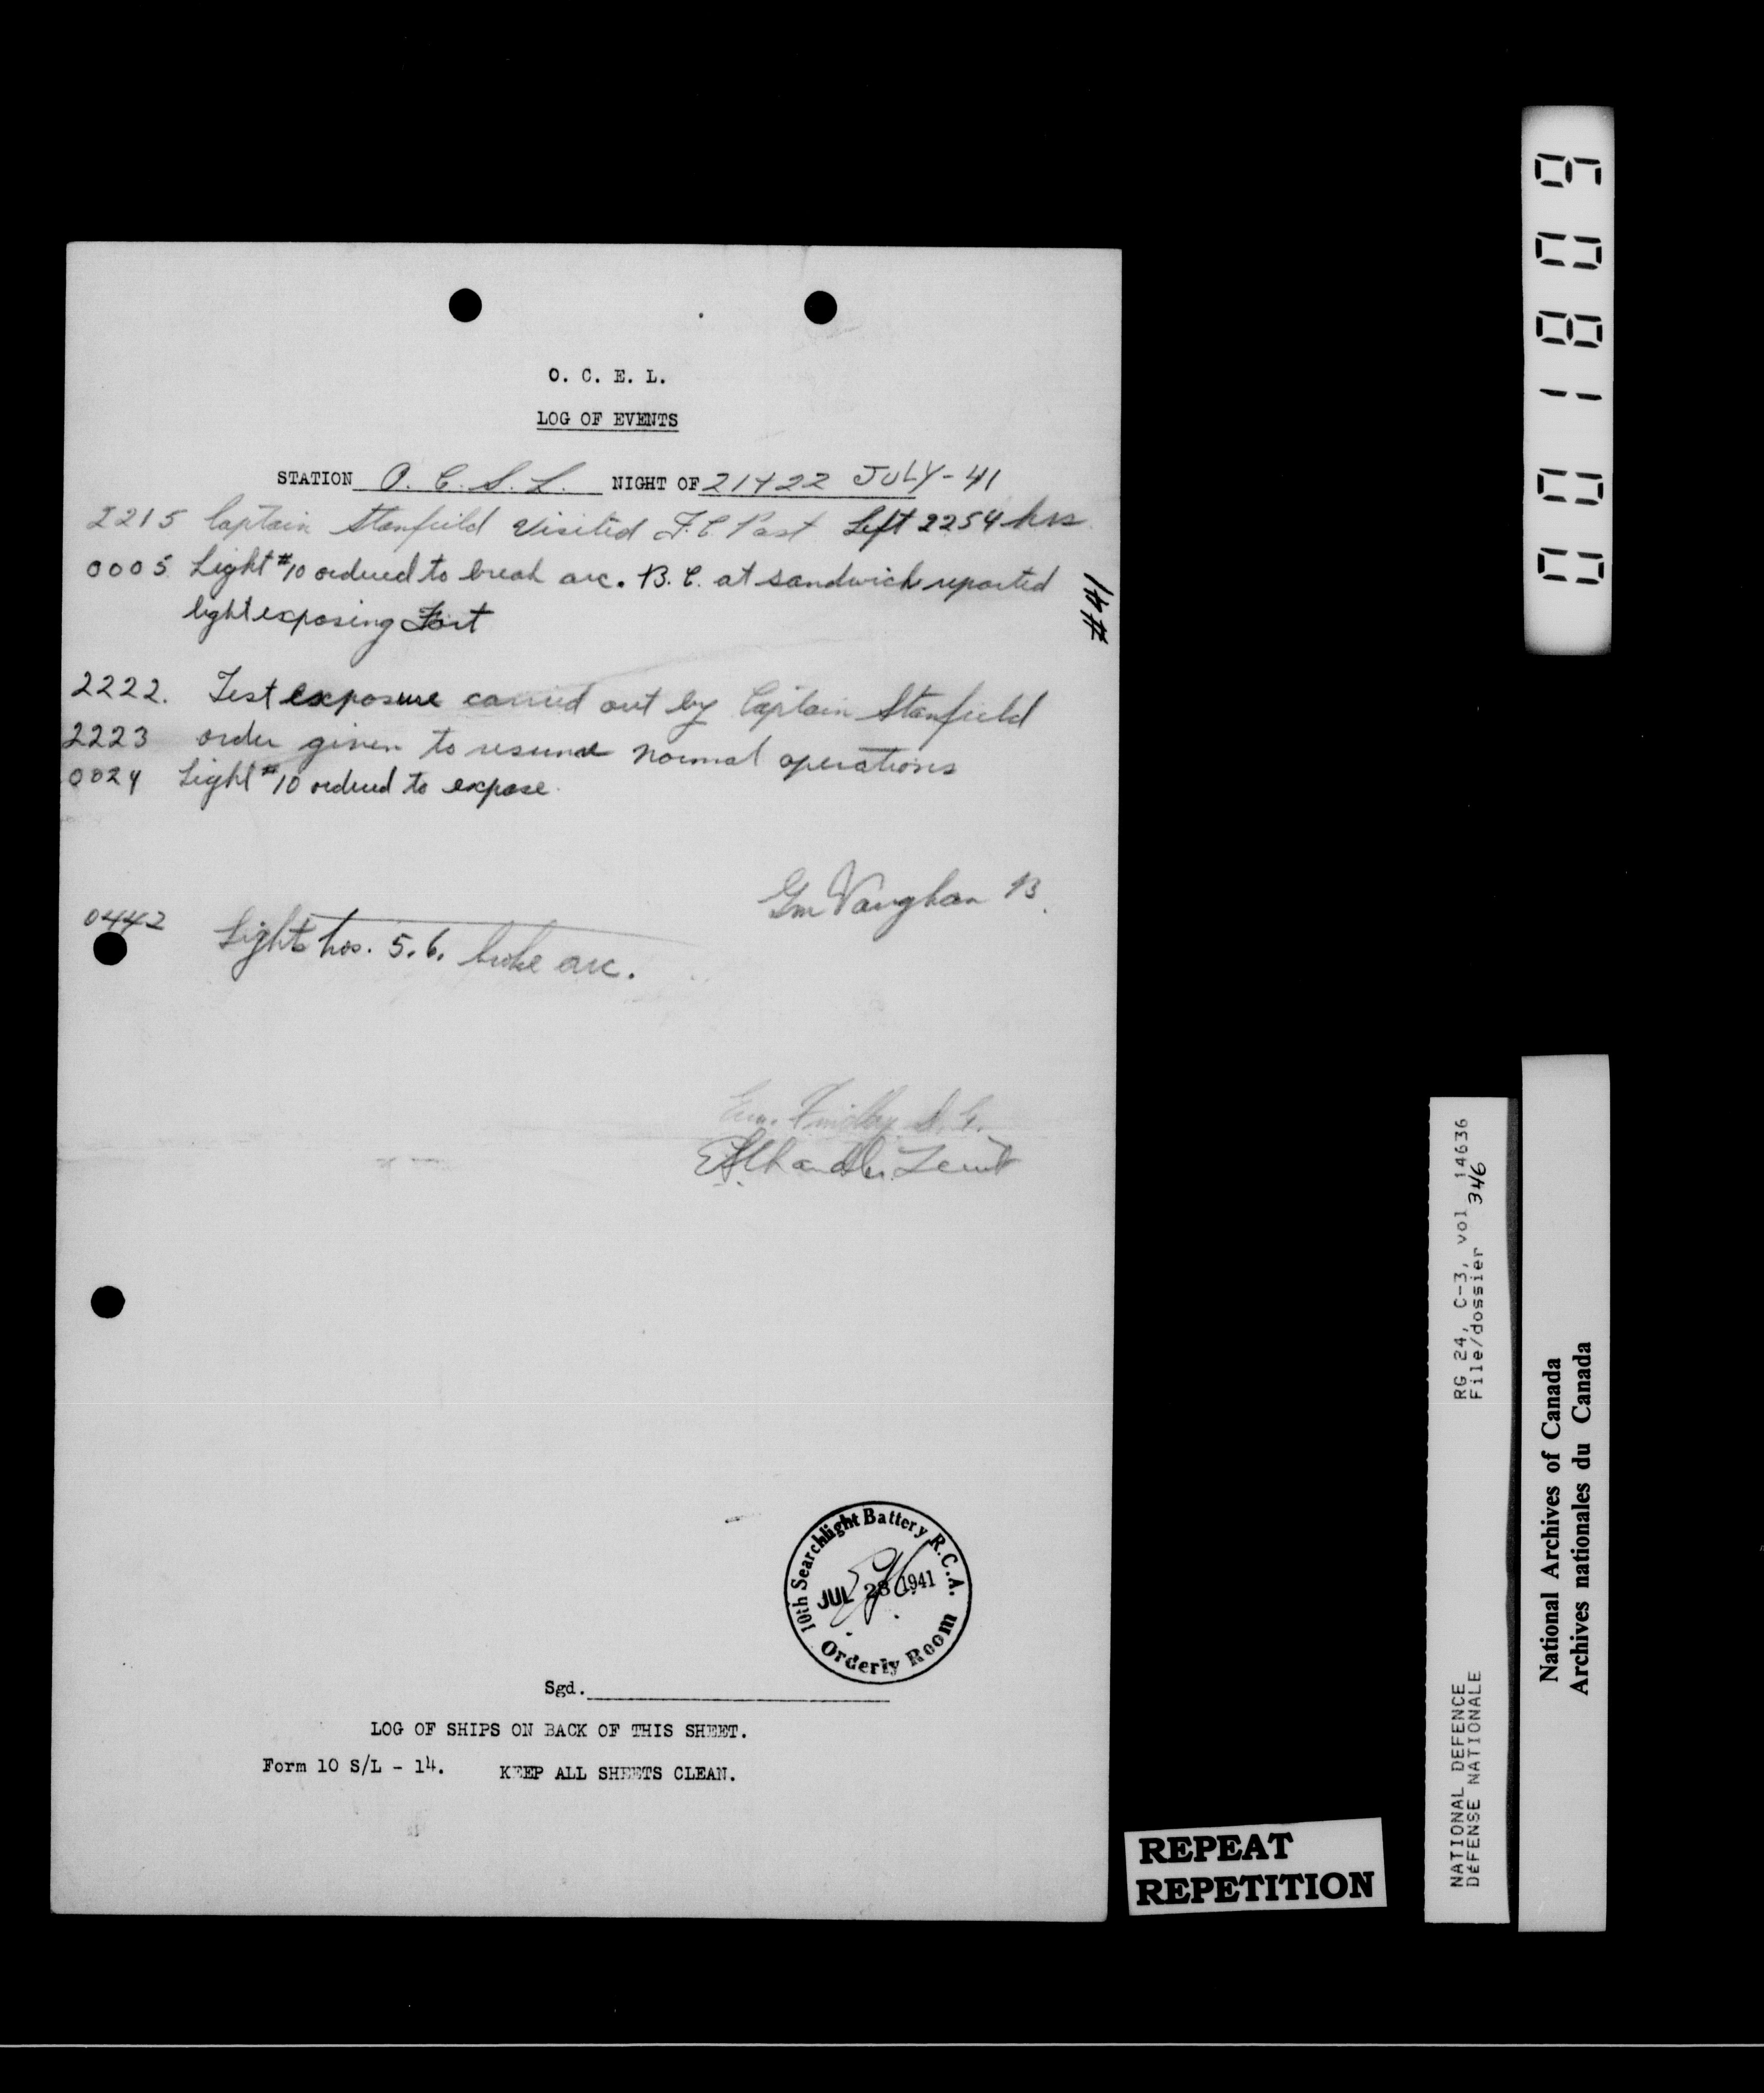 O. C. E. L.
LOG OF EVENTS
STATION O. C. S. L. NIGHT OF 21+22 JULY-41
2215 Captain Stanfield visited F.C. Post Left 2254 hrs
0005 Light #10 ordered to break arc. B.C. at sandwich reported
light exposing Fort
#41
2222. Test exposure carried out by Captain Stanfield
2223 order given to resume normal operations
0024 Light #10 ordered to expose.
Gnr Vaughan B.
0442 Lights Nos. 5. 6. broke arc.
Lieut
10th Searchlight Battery R.C.A.
JUL 28 1941
Orderly Room
Sgd.
LOG OF SHIPS ON BACK OF THIS SHEET.
Form 10 S/L - 14. KEEP ALL SHEETS CLEAN.
REPEAT
REPETITION
001809
RG 24, C-3, vol 14636
File/dossier 346
NATIONAL DEFENCE
DÉFENSE NATIONALE
National Archives of Canada
Archives nationales du Canada